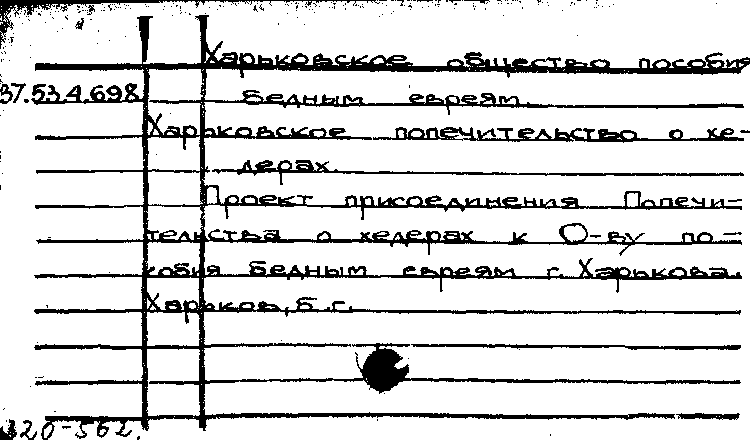 Харьковское общество пособия
37.53.4.698
бедным евреям.
Харьковское попечительство о хе-
дерах.
Проект присоединения Попечи-
тельства о хедерах к О-ву по-
собия бедным евреям г. Харькова.
Харьков, б.г.
320-562.